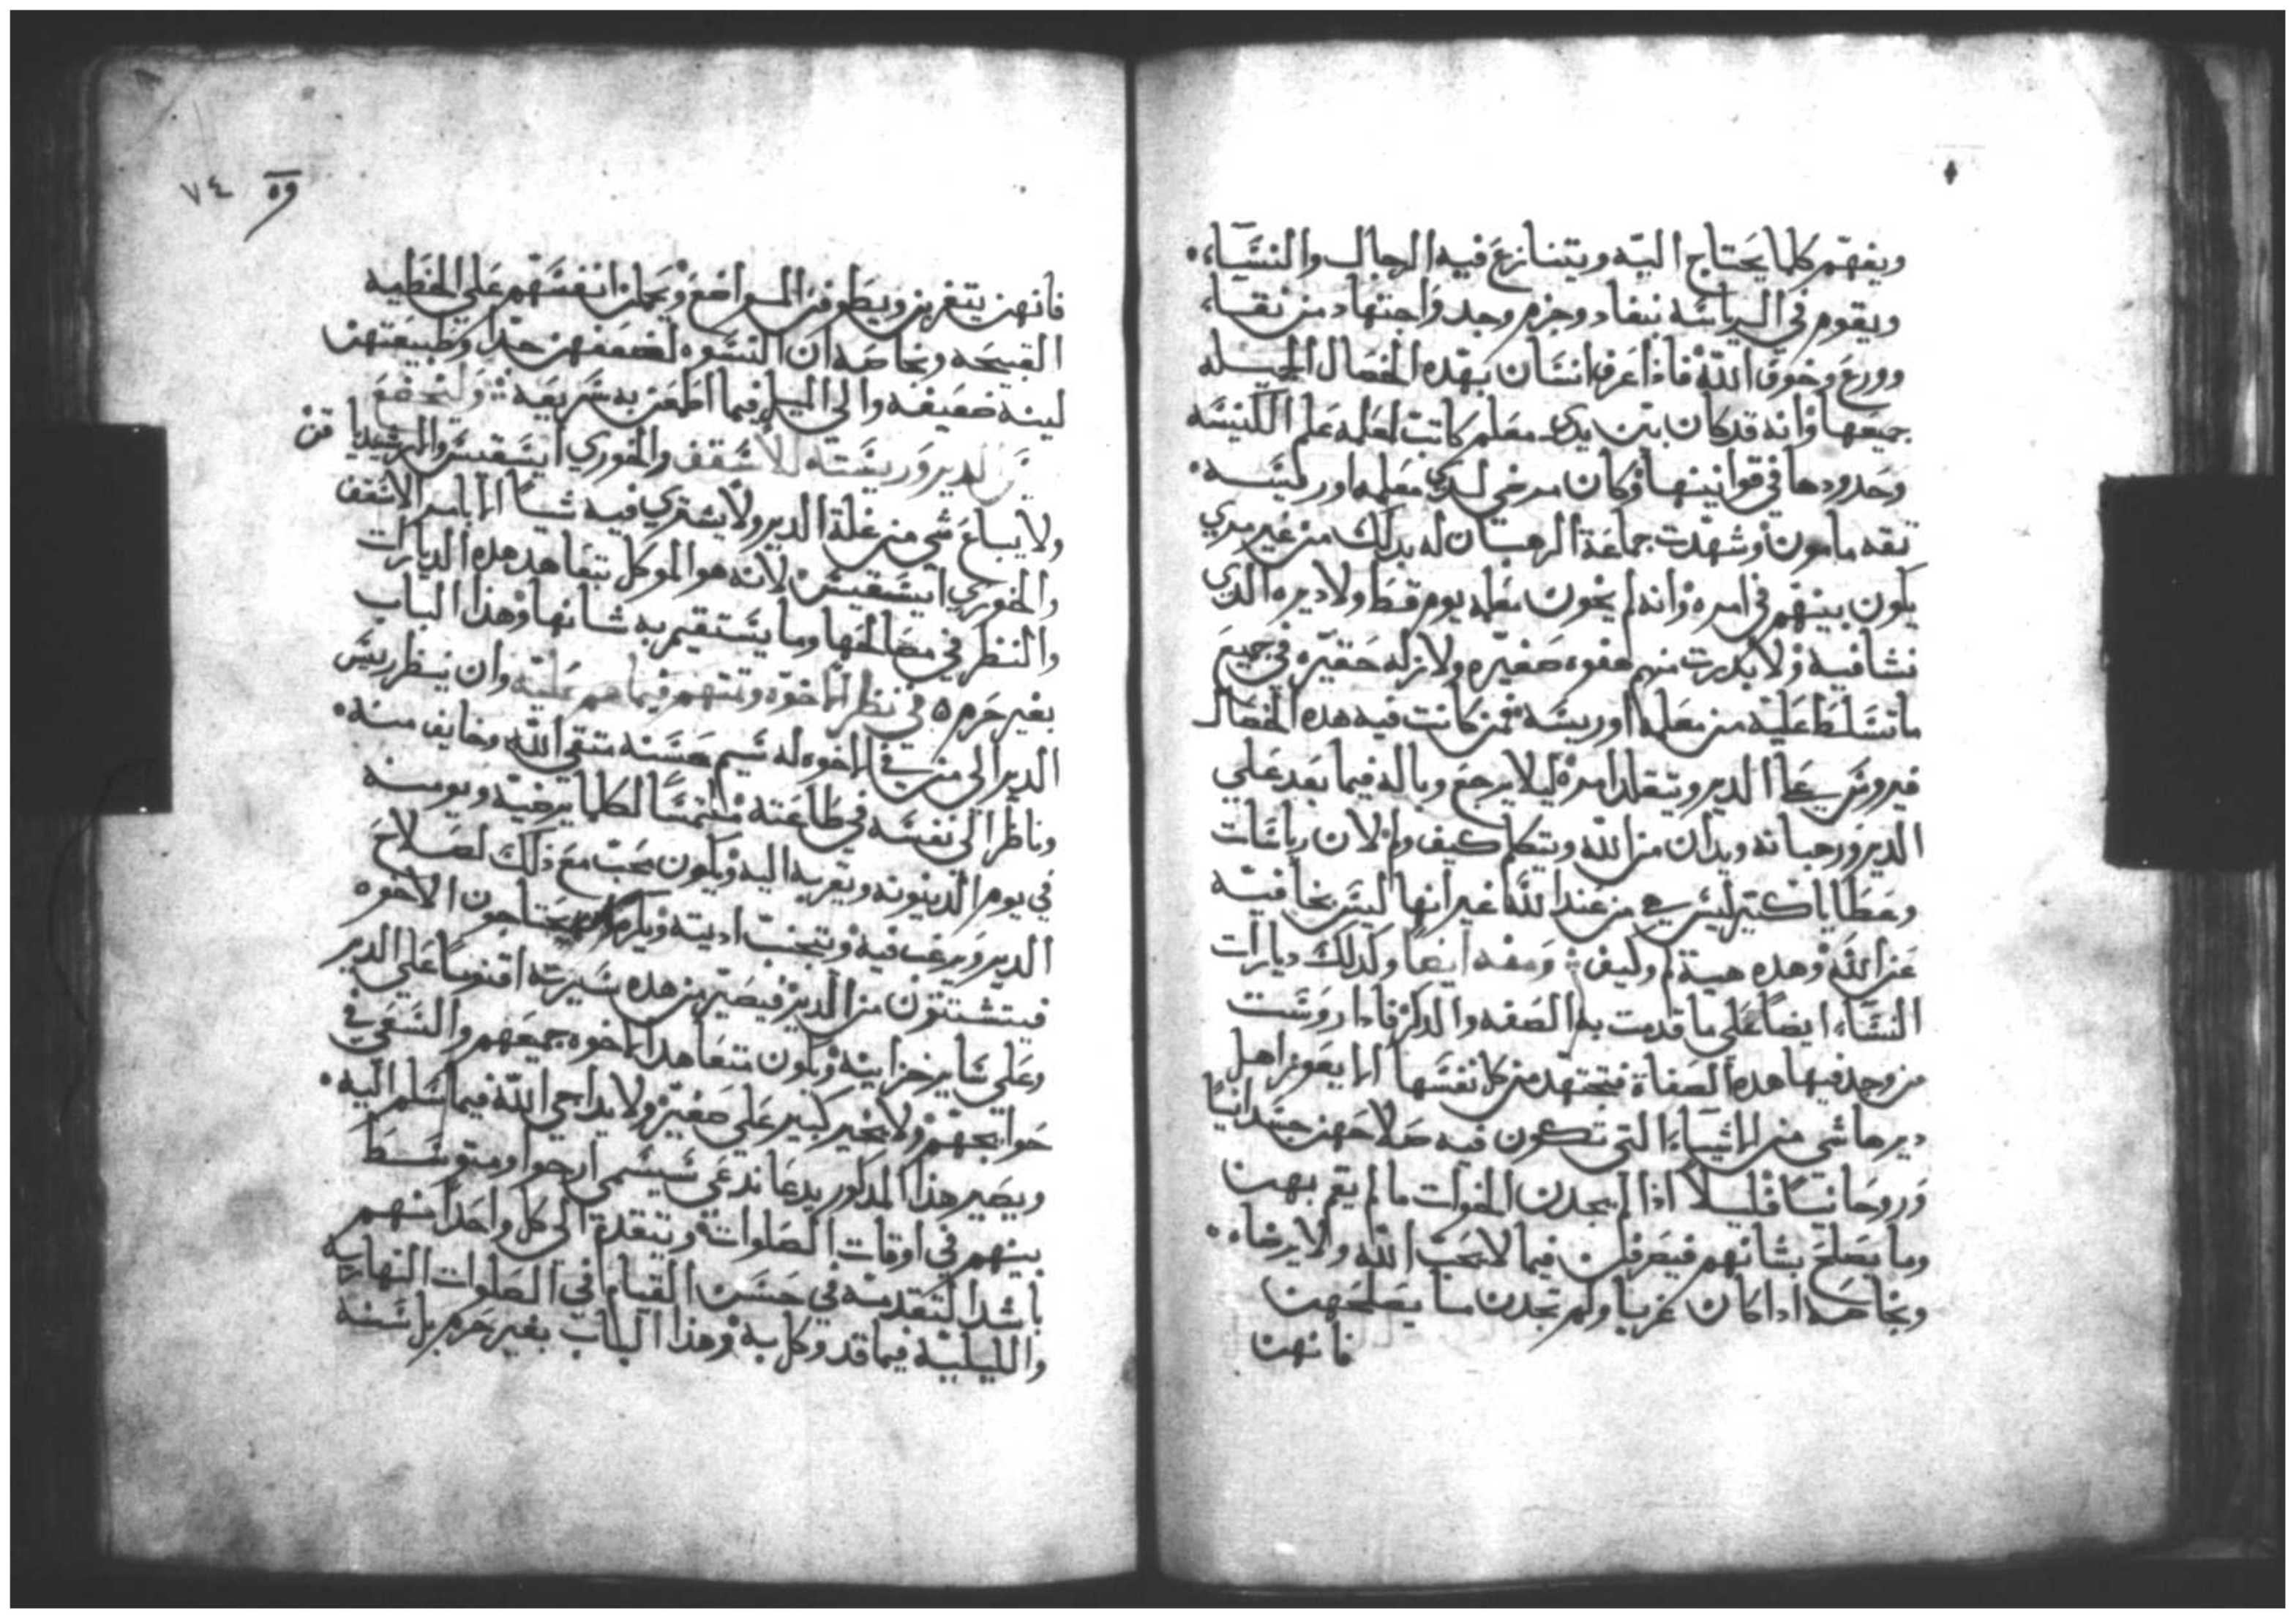 ويفهم كلما يحتاج اليه ويتنازع فيه الرجال والنساء،
ويقوم في الرياسه بنفاد وحزم وجد واجتهاد من نقا،
وورع وخوف الله فاذا عرف انسان بهده الخصال الجميله
جميعها وانه قد كان بين يدي معلم كاتب لعله علم الكنيسه
وحدودها في قوانينها وكان مرضي لدي معلمه اورييسه
ثقه مامون وشهدت جماعة الرهبان له بدلك من غير مري
يكون بينهم في امره وانه لم يخون معلمه يوم قط ولا ديره الدي
نشا فيه ولا بدرت منه هفوه صغيره ولا زله حقيره في جميع
ما تسلط عليه من معلمه اورييسه فمن كانت فيه هده الخصال
فيروس علي الدير ويتقلد امره ليلا يرجع وباله فيما بعد علي
الدير ورهبانه ويدان من الله ويتكلم كيف ولم لان رياسات
وعطايا كثير ليس هي من عند الله غير انها ليس بخافيه
عن الله وهده هيية لم وكيف وصفه ايضا وكدلك ديارات
النساء ايضا علي ما قدمت به الصفه والدكر فادا روست
من وجد فيها هده الصفاة فتجتهد من كل نفسها الا يعوز اهل
ديرها شي من الاشياء التي تكون فيه صلاحهن جسدانيا
وروحانيا قليلا اذا لم يجدن الخوات ما لم يقم بهن
وما يصلح بشانهم فيصرفن فيما لا يحب الله ولا يرضاه
وبخاصه ادا كان غربا ولم تجدن ما يصلحهن
فانهن
وه ٧٤
فانهن يتغربن ويطوفن المواضع ويحملن انفسهم علي الخطيه
القبيحه وبخاصه ان النسوه لضعفهن جدا وطبيعتهن
لينه ضعيفه والي الميل فيما اطعن به سريعه وليخضع
الدير ورييسته للاسقف والخوري ابيسقبس
ولا يباع شي من غلة الدير ولا يشتري فيه شيا الا بامر الاسقف
والخوري ابيسقبس لانه هو الموكل بتعاهد هده الديارات
والنظر في مصالحها وما يستقيم به شانها وهذا الباب
بغير حرم ه في نظر الاخوه وفيما هم عليه وان ينظر رييس
الدير الي من في الاخوه له شيم حسنه متقي الله وخايف منه
وناظرا الي نفسه في طاعته ملتمسا لكلما يرضيه ويومنه
في يوم الدينونه ويقربه اليه ويكون محب مع ذلك لصلاح
الدير ويرغب فيه ويتجنب اديته يحتاجون الاخوه
فيتشتتون من الدير فيصير من هده سيرته اقنوما علي الدير
وعلي ساير خزاينه ويكون متعاهدا الاخوه جميعهم والسعي في
حوايجهم ولا يخير كبير علي صغير ولا يداجي الله فيما سلم اليه
ويصير هذا المدكور يدعا ندعي شيسمي ارخوا ومتوسط
بينهم في اوقات الصلوات ويتقدم الي كل واحدا منهم
باشد التقدمه في حسن القيام في الصلوات النهاريه
والليليه فيما قد وكل به وهذا الباب بغير حرم بل سنه